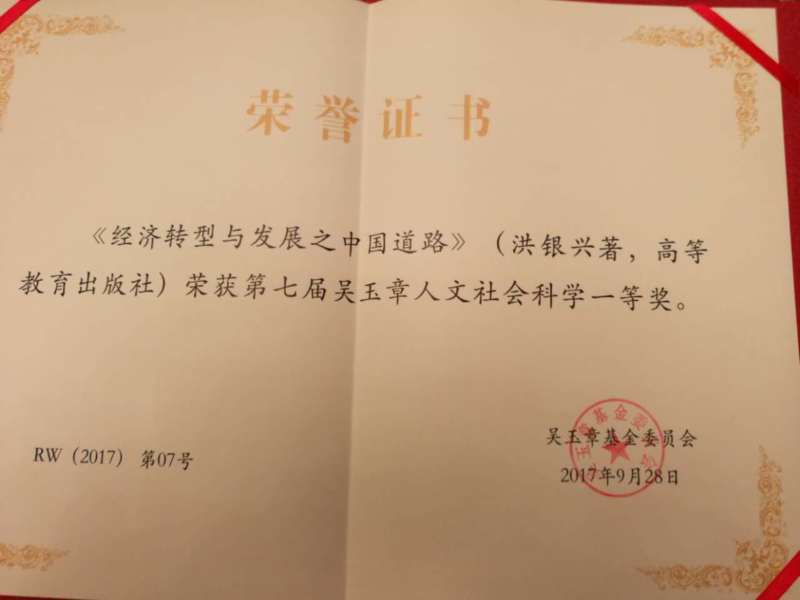 荣誉证书
《经济转型与发展之中国道路》（洪银兴著，高等
教育出版社）荣获第七届吴玉章人文社会科学一等奖。
吴玉章基金委员会
RW（2017）第07号
2017年9月28日
吴玉章基金委员会